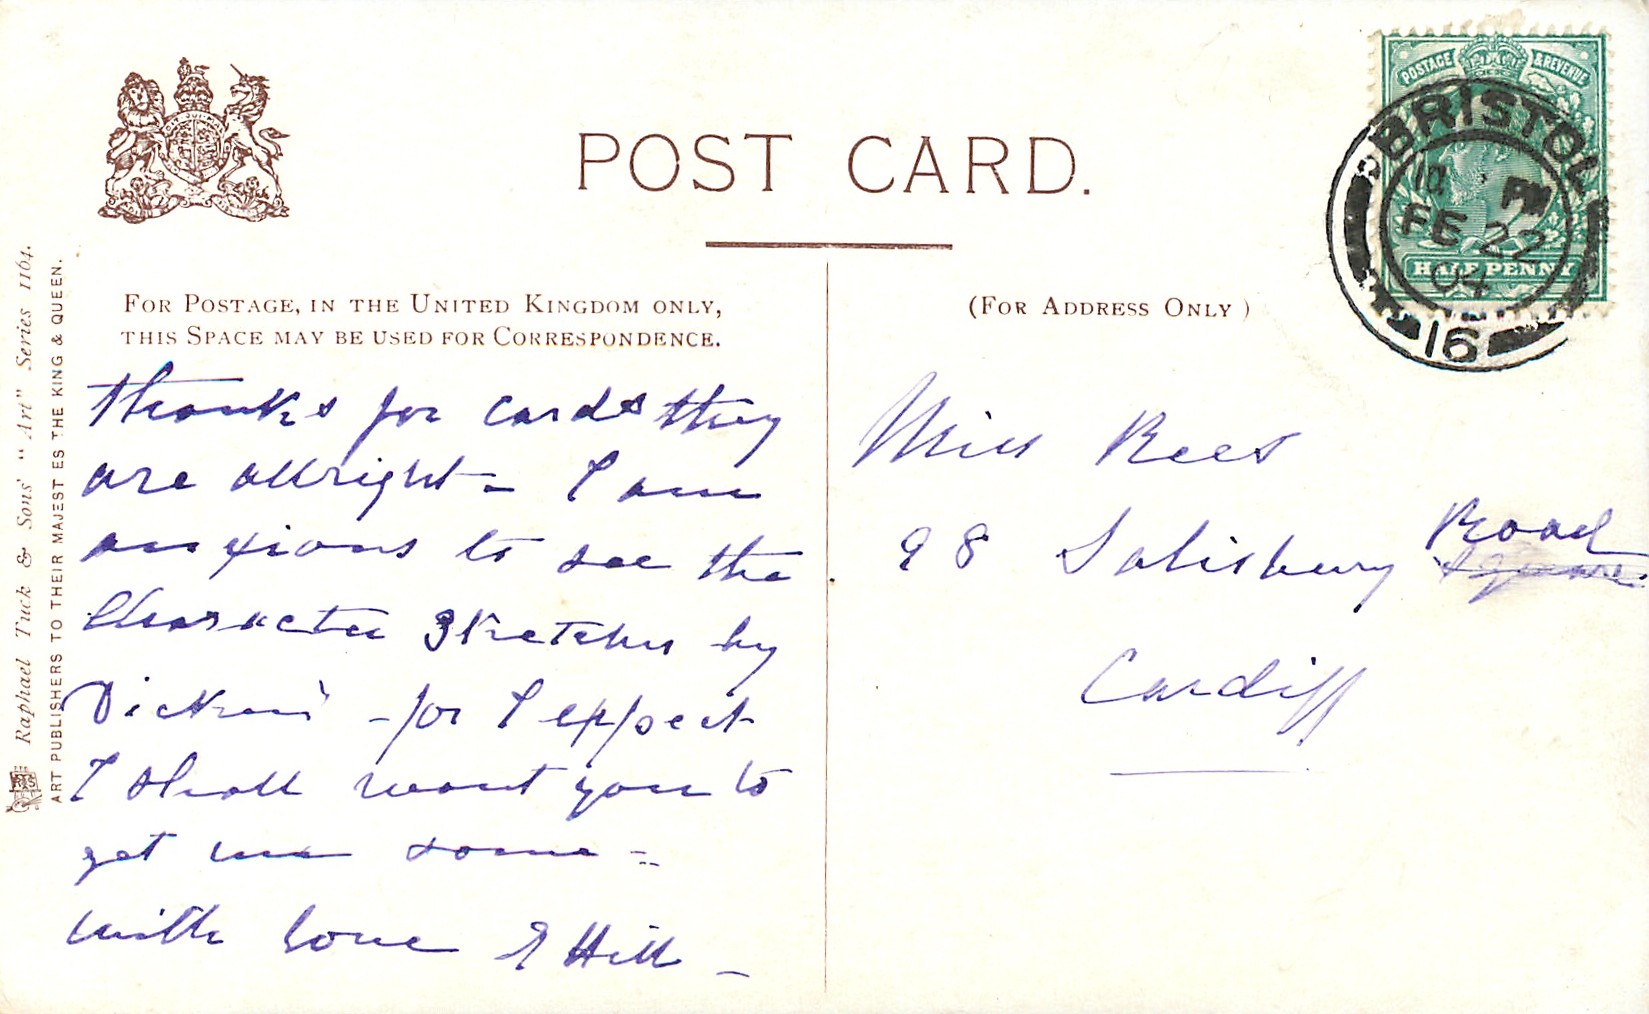 POST CARD.
POSTAGE & REVENUE
HALF PENNY
BRISTOL
PM
FE 22
04
16
FOR POSTAGE, IN THE UNITED KINGDOM ONLY,
THIS SPACE MAY BE USED FOR CORRESPONDENCE.
(FOR ADDRESS ONLY)
Raphael Tuck & Sons' "Art" Series 1164.
ART PUBLISHERS TO THEIR MAJESTIES THE KING & QUEEN.
Thanks for cards they
are allright - I am
anxious to see the
Character Sketches by
Dickens - for I expect
I shall want you to
get me some =
with love E Hill -
Miss Rees
98 Salisbury Road
Square
Cardiff